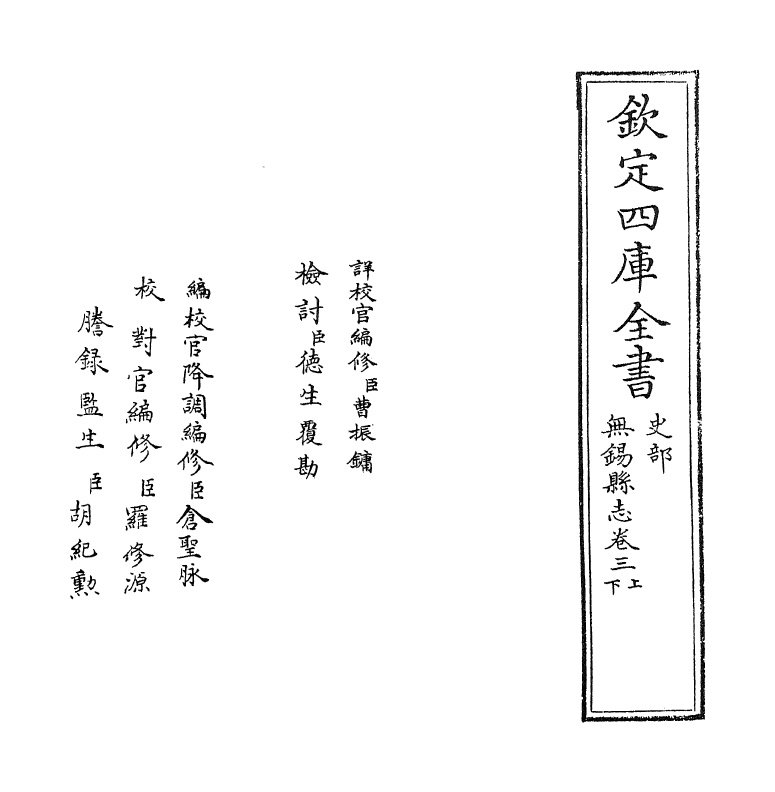 欽定四庫全書
史部
無錫縣志卷三上下
詳校官編修臣曹振鏞
檢討臣德生覆勘
編校官降調編修臣倉聖脉
校對官編修臣羅修源
謄錄監生臣胡紀勲